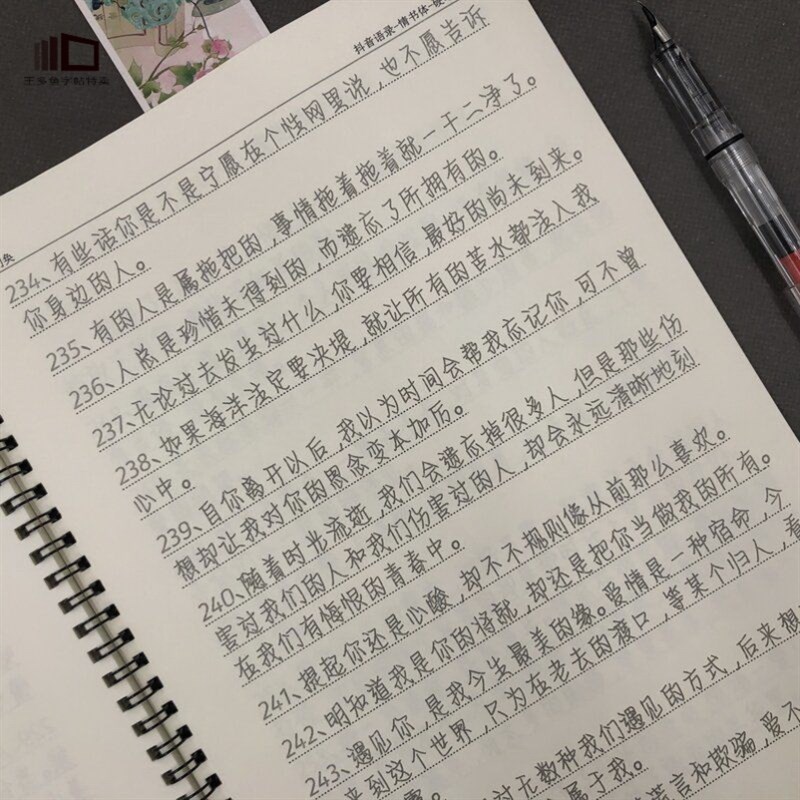 王多鱼字帖特卖
抖音语录-情书体-硬
234、有些话你是不是宁愿在个性网里说,也不愿告诉
你身边的人。
235、有的人是属拖把的,事情拖着拖着就一干二净了。
236、人总是珍惜未得到的,而遗忘了所拥有的。
237、无论过去发生过什么,你要相信,最好的尚未到来。
238、如果海洋注定要决堤,就让所有的苦水都注入我
心中。
239、自你离开以后,我以为时间会帮我忘记你,可不曾
想却让我对你的思念变本加厉。
240、随着时光流逝,我们会遗忘掉很多人,但是那些伤
害过我们的人和我们伤害过的人,却会永远清晰地刻
在我们有悔恨的青春中。
241、提起你还是心酸,却不不规则像从前那么喜欢。
242、明知道我是你的将就,却还是把你当做我的所有。
243、遇见你,是我今生最美的缘。爱情是一种宿命,今
来到这个世界,只为在老去的渡口,等某个归人,看
对无数种我们遇见的方式,后来想
属于我。
谎言和欺骗,爱不